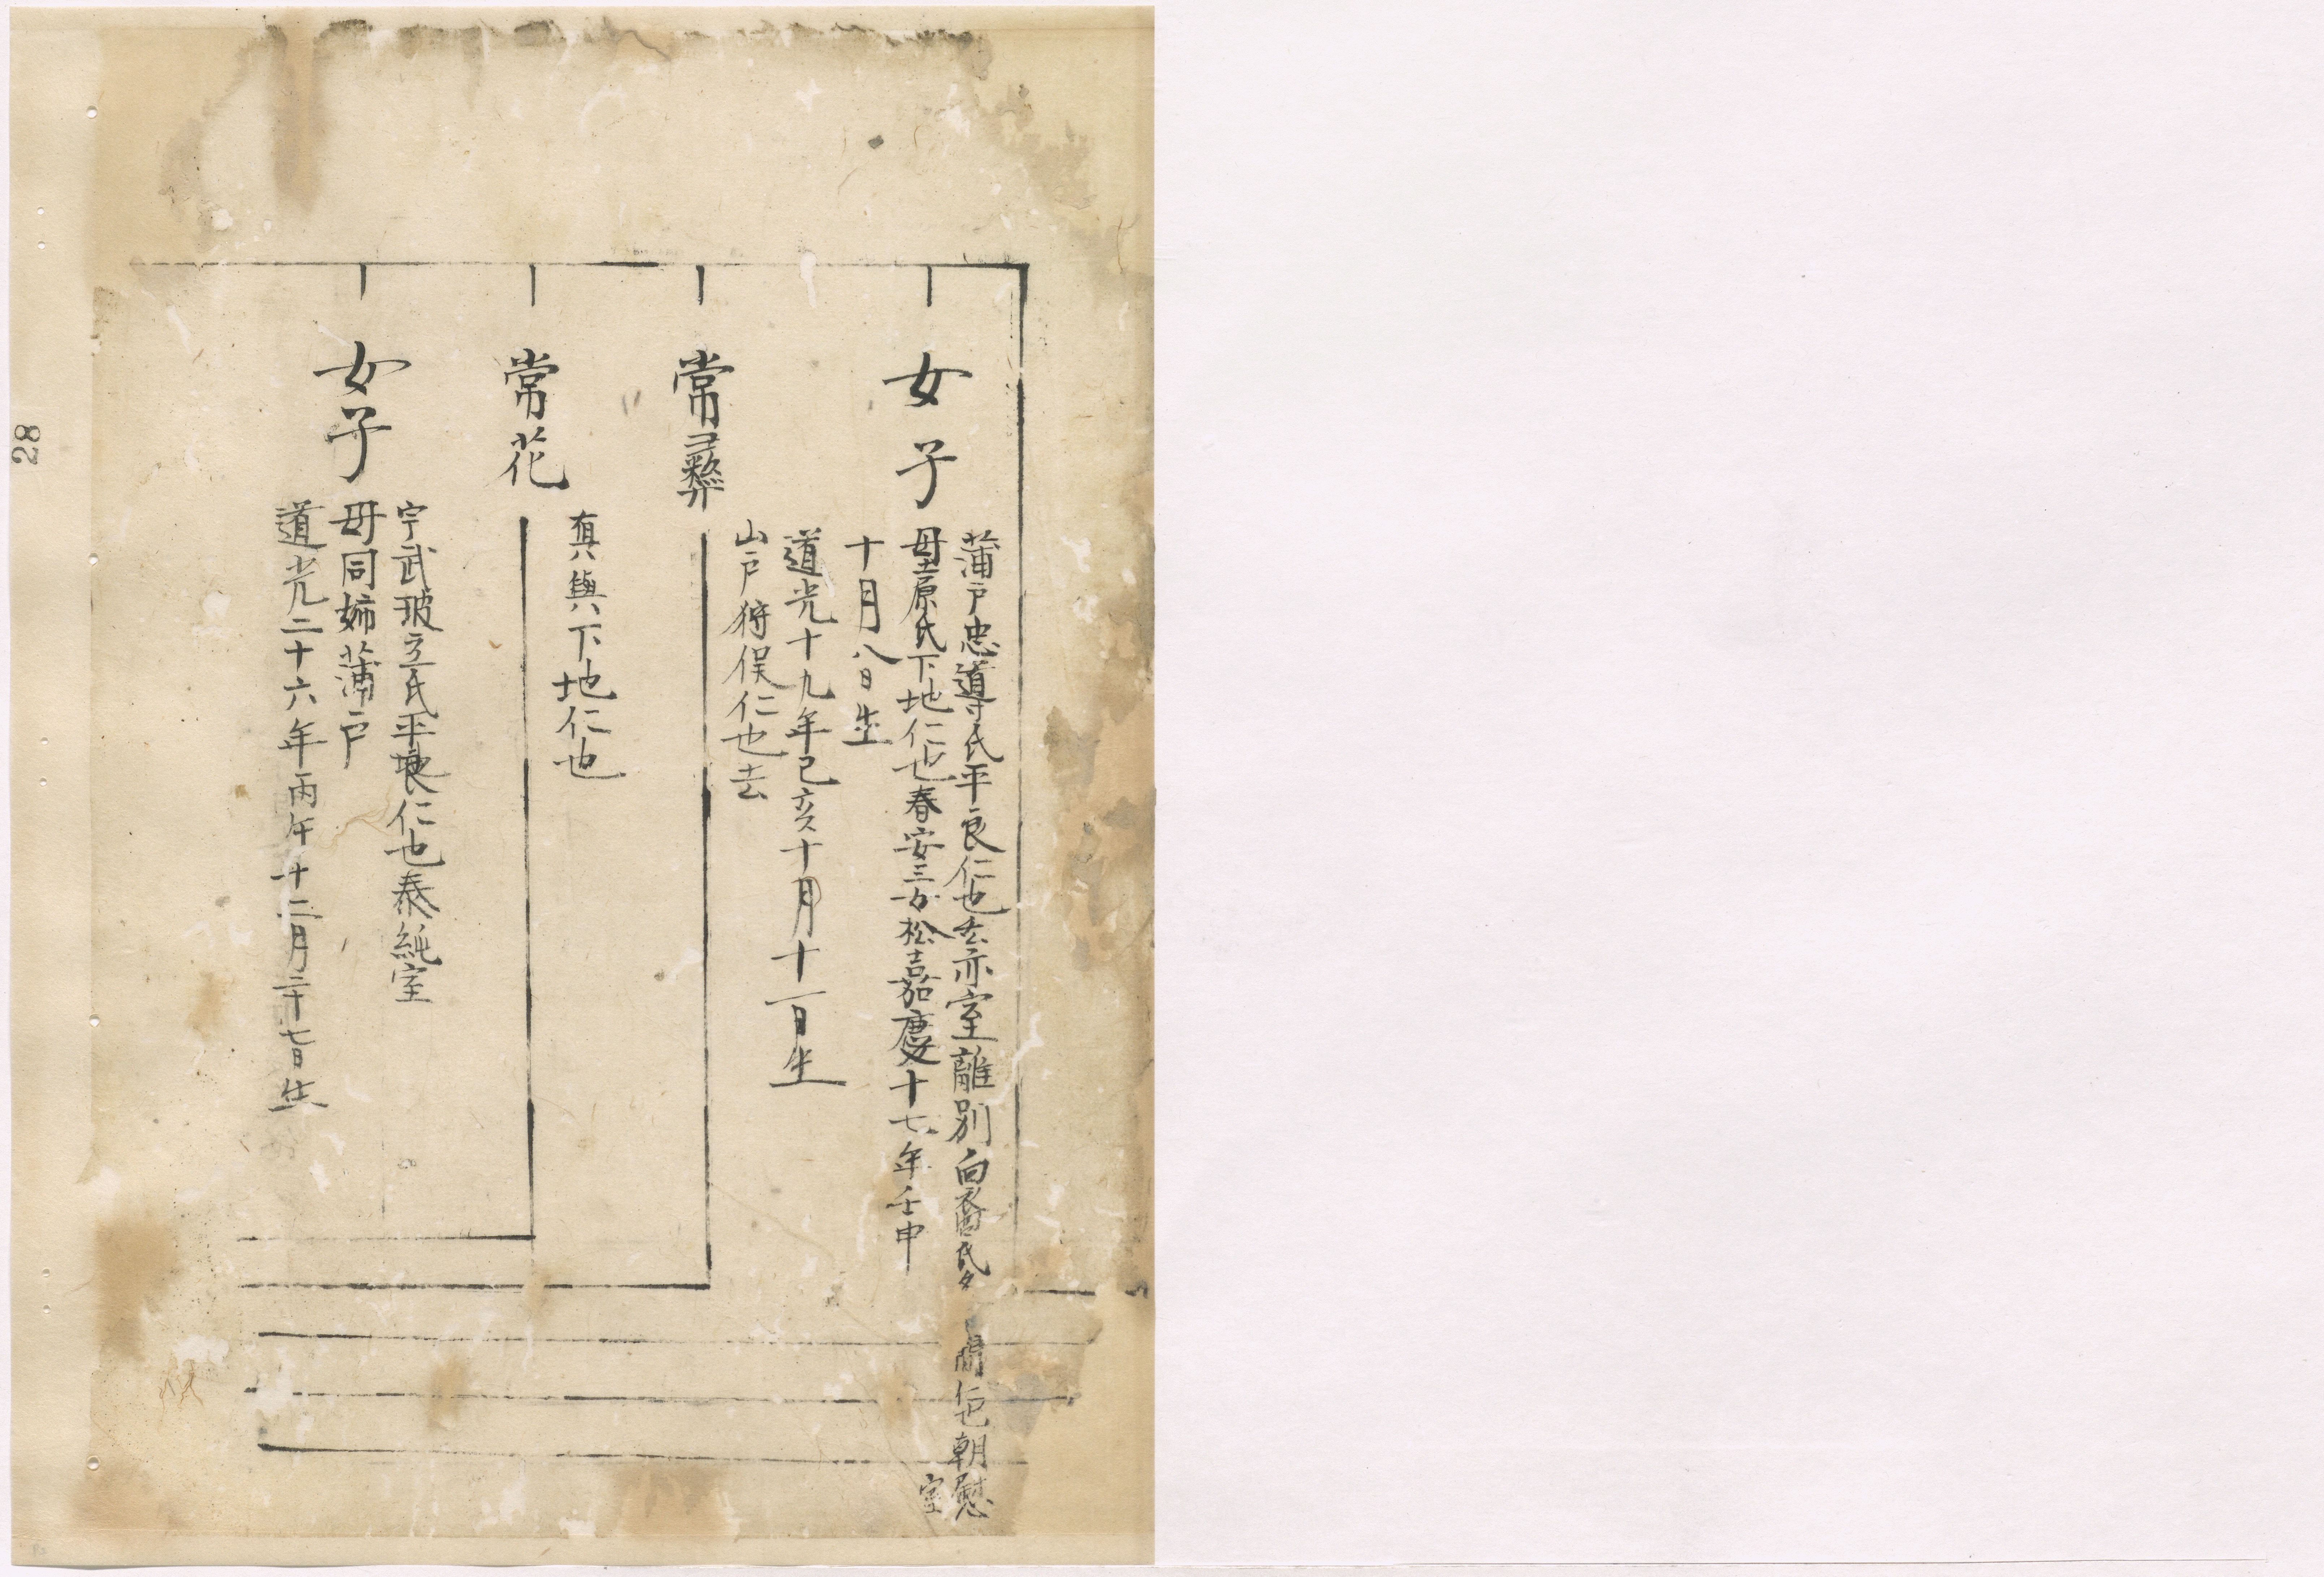 女子
蒲戸忠導氏平良仁也去亦室離別向裔氏
間仁也朝慰
室
母土原氏下地仁也春安三女松嘉慶十七年壬申
十月八日生
常彛
道光十九年己亥十月十一日生
山戸狩俣仁也去
常花
真與下地仁也
女子
宇武玻立氏平良仁也泰純室
母同姉蒲戸
道光二十六年丙午十二月二十七日生
28